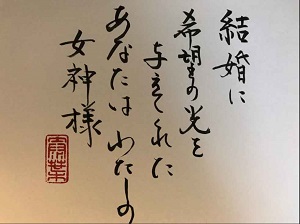 結婚に
希望の光を
与えてくれた
あなたはわたしの
女神様